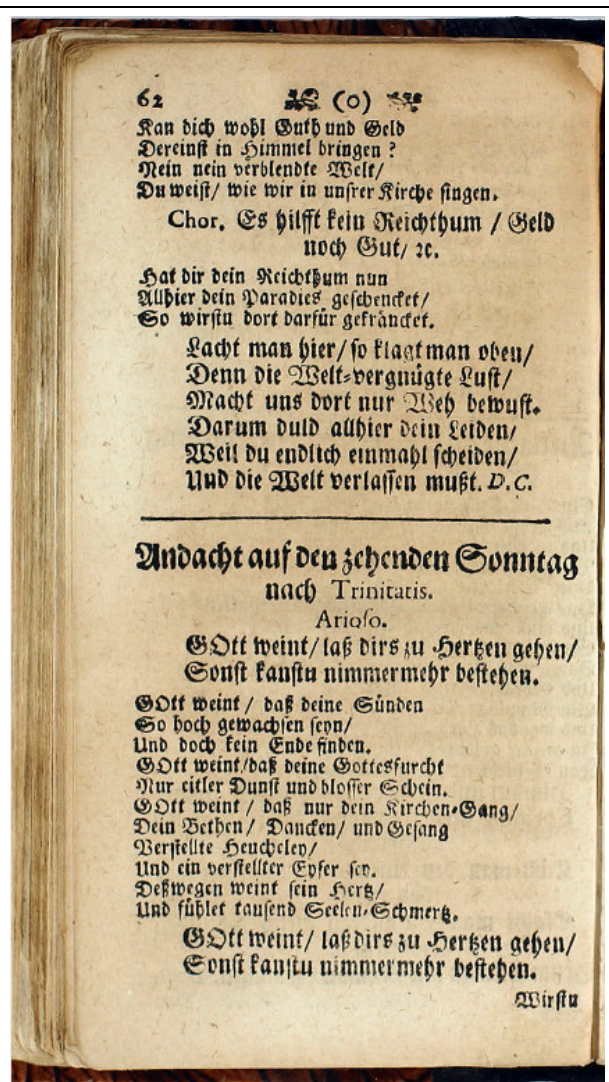 62 (o)
Kan dich wohl Guth und Geld
Dereinst in Himmel bringen ?
Nein nein verblendte Welt/
Du weist/ wie wir in unsrer Kirche singen.
Chor. Es hilfft kein Reichthum / Geld
noch Gut/ ꝛc.
Hat dir dein Reichthum nun
Allhier dein Paradies geschencket/
So wirstu dort darfür gekräncket.
Lacht man hier/ so klagt man oben/
Denn die Welt-vergnügte Lust/
Macht uns dort nur Weh bewust.
Darum duld allhier dein Leiden/
Weil du endlich einmahl scheiden/
Und die Welt verlassen mußt. D.C.
Andacht auf den zehenden Sonntag
nach Trinitatis.
Arioso.
GOtt weint/ laß dirs zu Hertzen gehen/
Sonst kanstu nimmermehr bestehen.
GOtt weint / daß deine Sünden
So hoch gewachsen seyn/
Und doch kein Ende finden.
GOtt weint/daß deine Gottesfurcht
Nur eitler Dunst und blosser Schein.
GOtt weint / daß nur dein Kirchen-Gang/
Dein Bethen/ Dancken/ und Gesang
Verstellte Heucheley/
Und ein verstellter Eyfer sey.
Deßwegen weint sein Hertz/
Und fühlet tausend Seelen-Schmertz.
GOtt weint/ laß dirs zu Hertzen gehen/
Sonst kanstu nimmermehr bestehen.
Wirstu